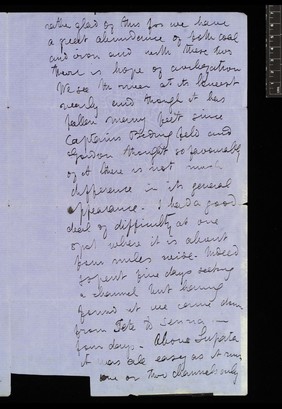 rather glad of this for we have
a great abundance of both coal
and iron and with these two
there is hope of civilization
We see the river at its lowest
nearly and though it has
fallen many feet since
Captains Bedingfeld and
Gordon thought so favourably
of it there is not much
difference in its general
appearance. I had a good
deal of difficulty at one
spot where it is about
four miles wide. Indeed
I spent five days seeking
a channel but having
found it we came down
from Tete to Senna
four days. Above Lupata
it was all easy as it runs
one or two channels only